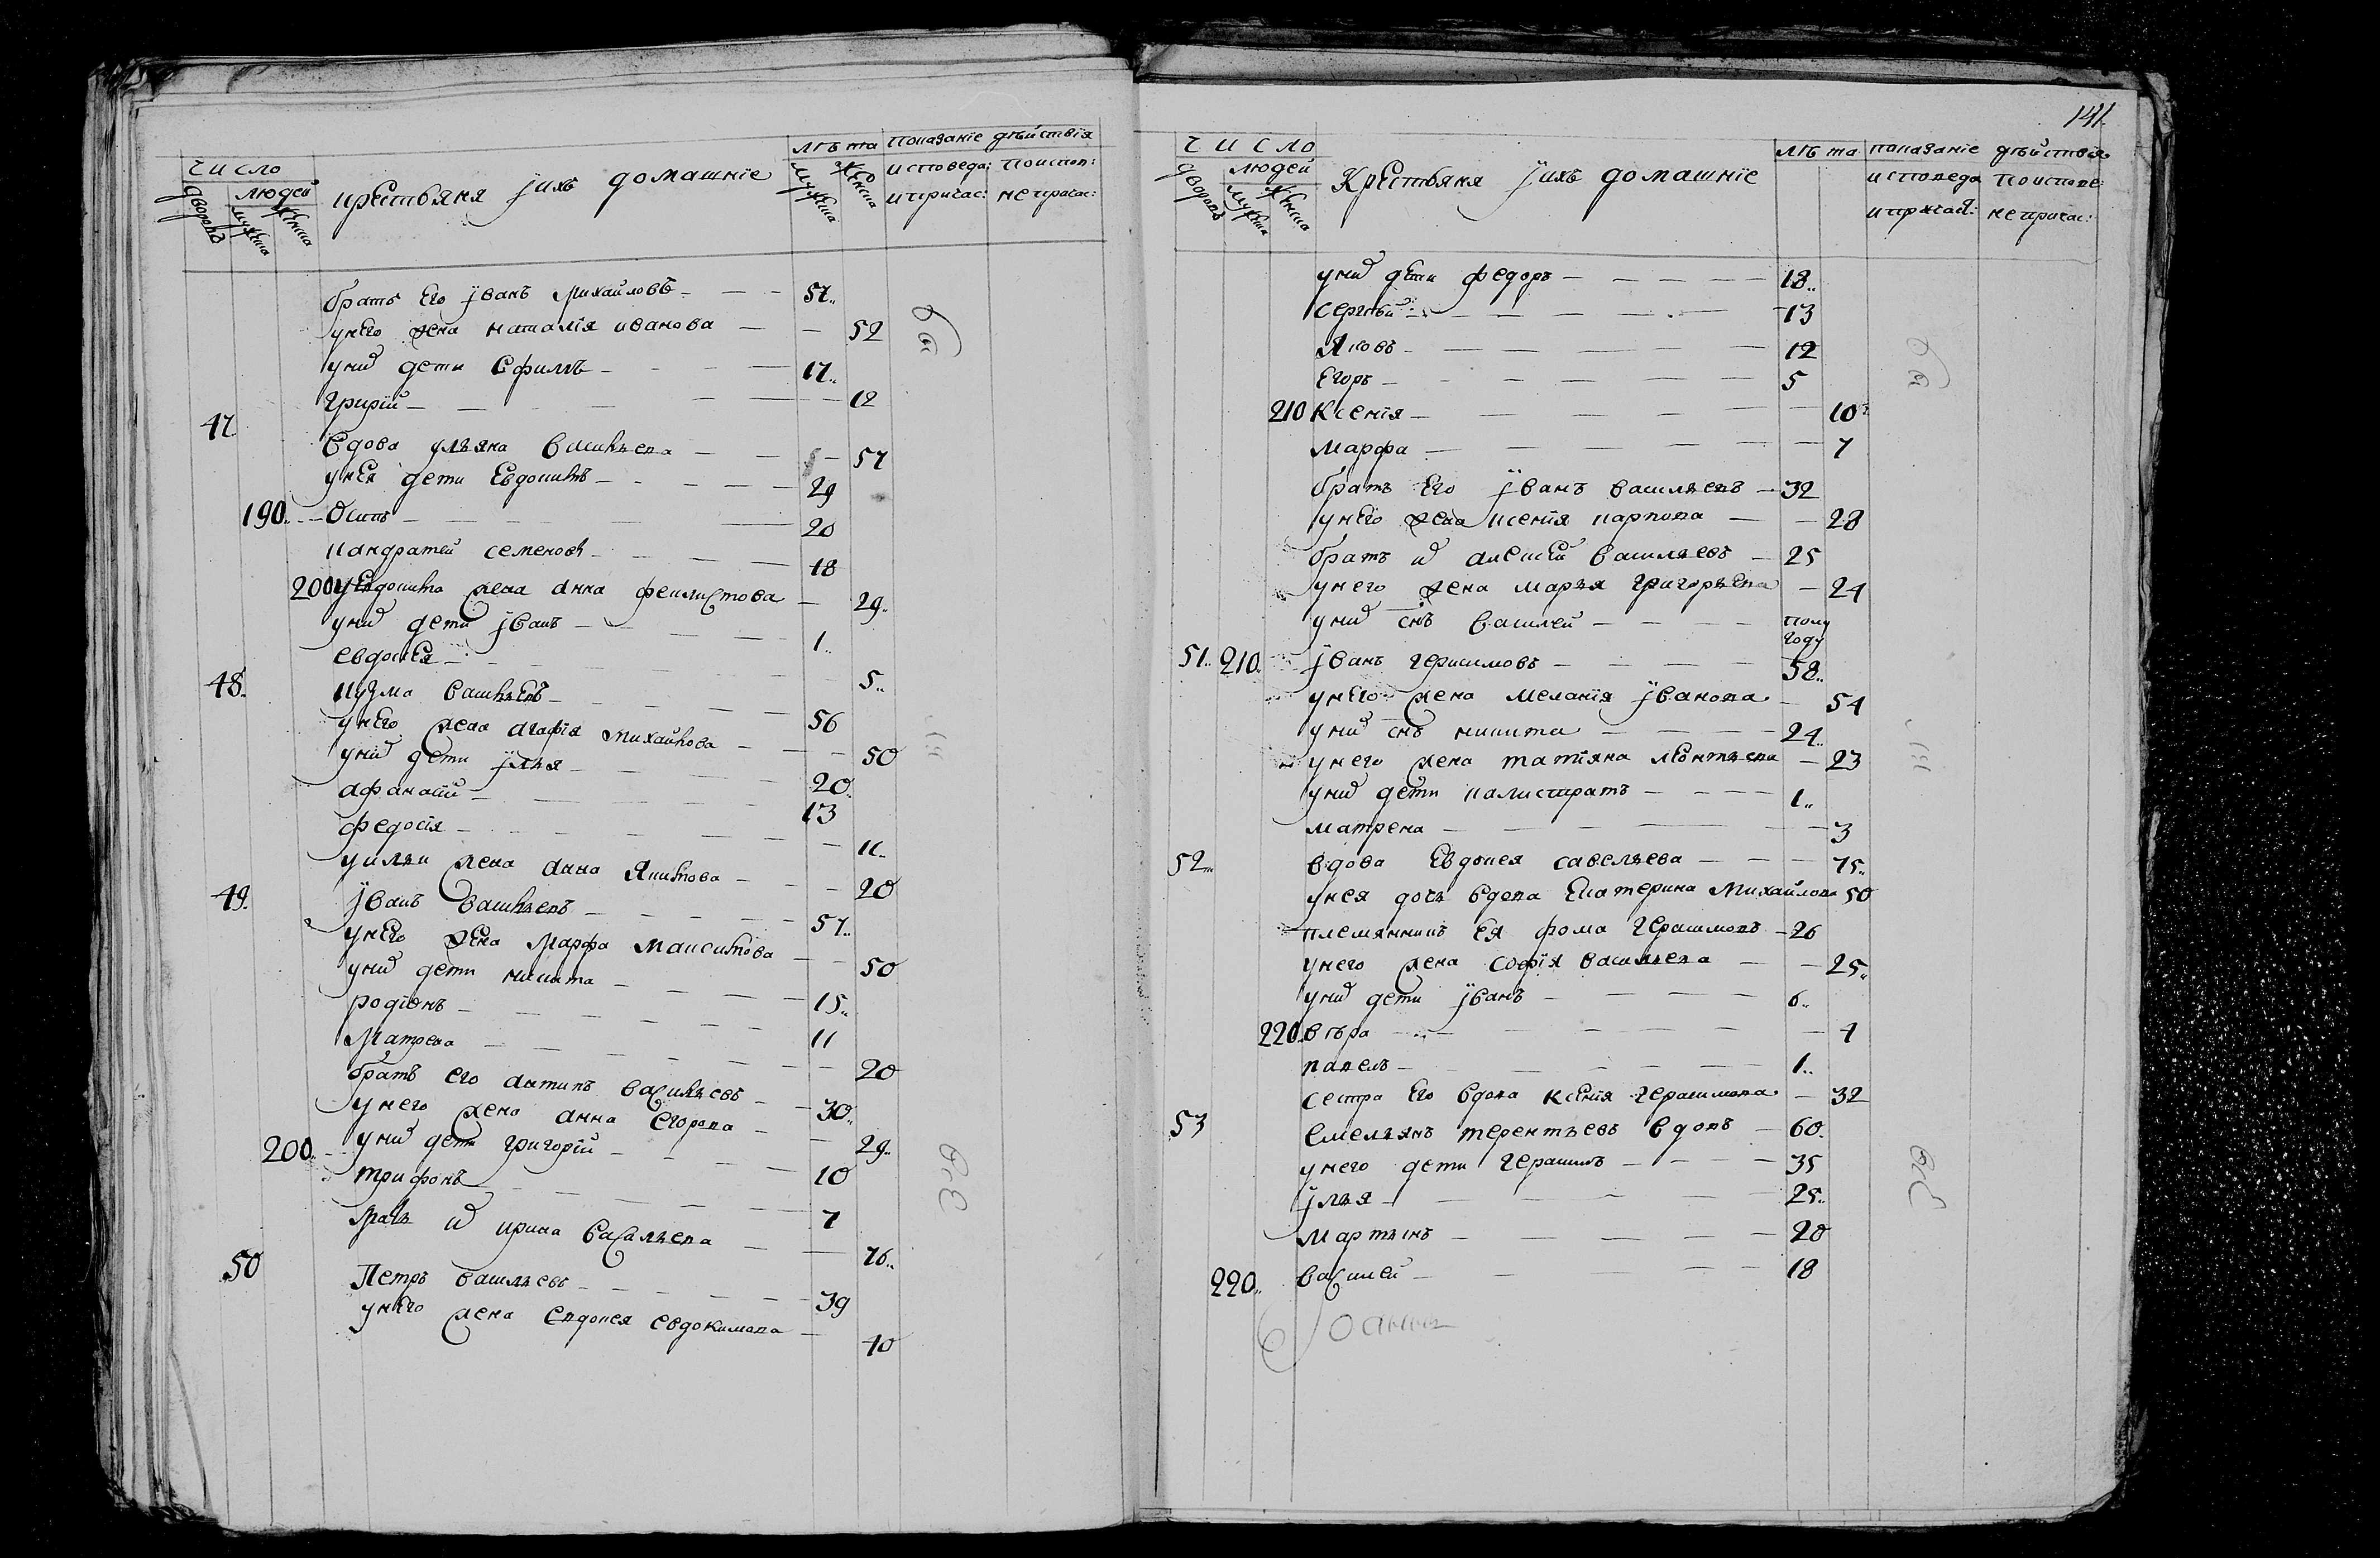 число
людей
дворовъ мужеска женска
крестьяня їихъ домашніе
лѣта
мужеска женска
показаніе дѣйствія
исповеда: поиспов:
ипричас: непричас:
братъ Его їванъ Михайловъ 57
унего жена наталія иванова 52
унид дети Ефимъ 17
Григїй 12
47 Вдова ульяна васильева 57
унея дети Евдокимъ 29
190 Осипъ 20
кандратей семеновъ 18
200 уЕвдокима жена анна феклистова 29
унид дети їванъ 1
евдокея 5
48 кузма васильевъ 56
унего жена агафїя михайлова 50
унид дети їлья 20
афанасїй 13
федосїя 11
уильи жена анна Якимова 20
49 їванъ васильевъ 57
унего жена Марфа максимова 50
унид дети никита 15
родїонъ 11
Матрена 20
братъ его антипъ васильевъ 30
унего жена анна егорова 29
200 унид дети григорїй 10
трифонъ 7
мать ид ирина васильева 76
50 Петръ васильевъ 39
унего жена евдокея евдокимова 40
141
число
людей
дворовъ мужеска женска
Крестьяня їихъ домашніе
лѣта
показаніе дѣйствія
исповеда поиспове:
ипричас: непричас:
унид дети федоръ 18
сергѣй 13
Яковъ 12
Егоръ 5
210 Ксенїя 10
марфа 7
братъ Его їванъ васильевъ 32
унего жена ксенїя карпова 28
братъ ид алексей васильевъ 25
унего жена марья григорьева 24
унид снъ василей полу году
51 210 їванъ герасимовъ 58
унего жена меланїя їванова 54
унид снъ никита 24
унего жена татїяна леонтьева 23
унид дети калистратъ 1
матрена 3
52 вдова Евдокея савельева 75
унея дочь вдова Екатерина Михайлова 50
племянникъ ея фома герасимовъ 26
унего жена софїя васильева 25
унид дети їванъ 6
220 вѣра 4
павелъ 1
сестра Его вдова ксенїя герасимова 32
53 емельянъ терентьевъ вдовъ 60
унего дети герасимъ 35
їлья 25
мартынъ 20
220 василей 18